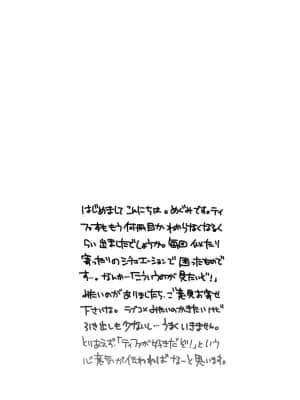 はじめまして こんにちは。めぐみです。ティ
ファ本ももう何冊目かわからなくなるく
らい出ましたでしょうか。毎回 似たり
寄ったりのシチュエーションで 困ったもので
す…。なんかー「こういうのが見たいぞ!」
みたいのがありましたら、ご意見お寄せ
下さいな。ラブコメみたいのかきたいけど
引き出しも少ないし…うまくいきません。
とりあえず「ティファが好きだぞ!」という
心意気が伝わればな〜と思います。